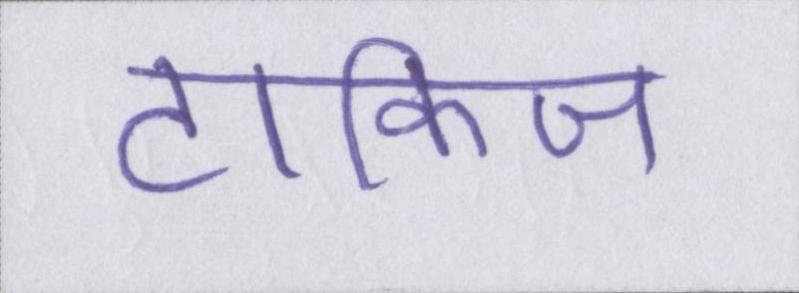 टाकिज